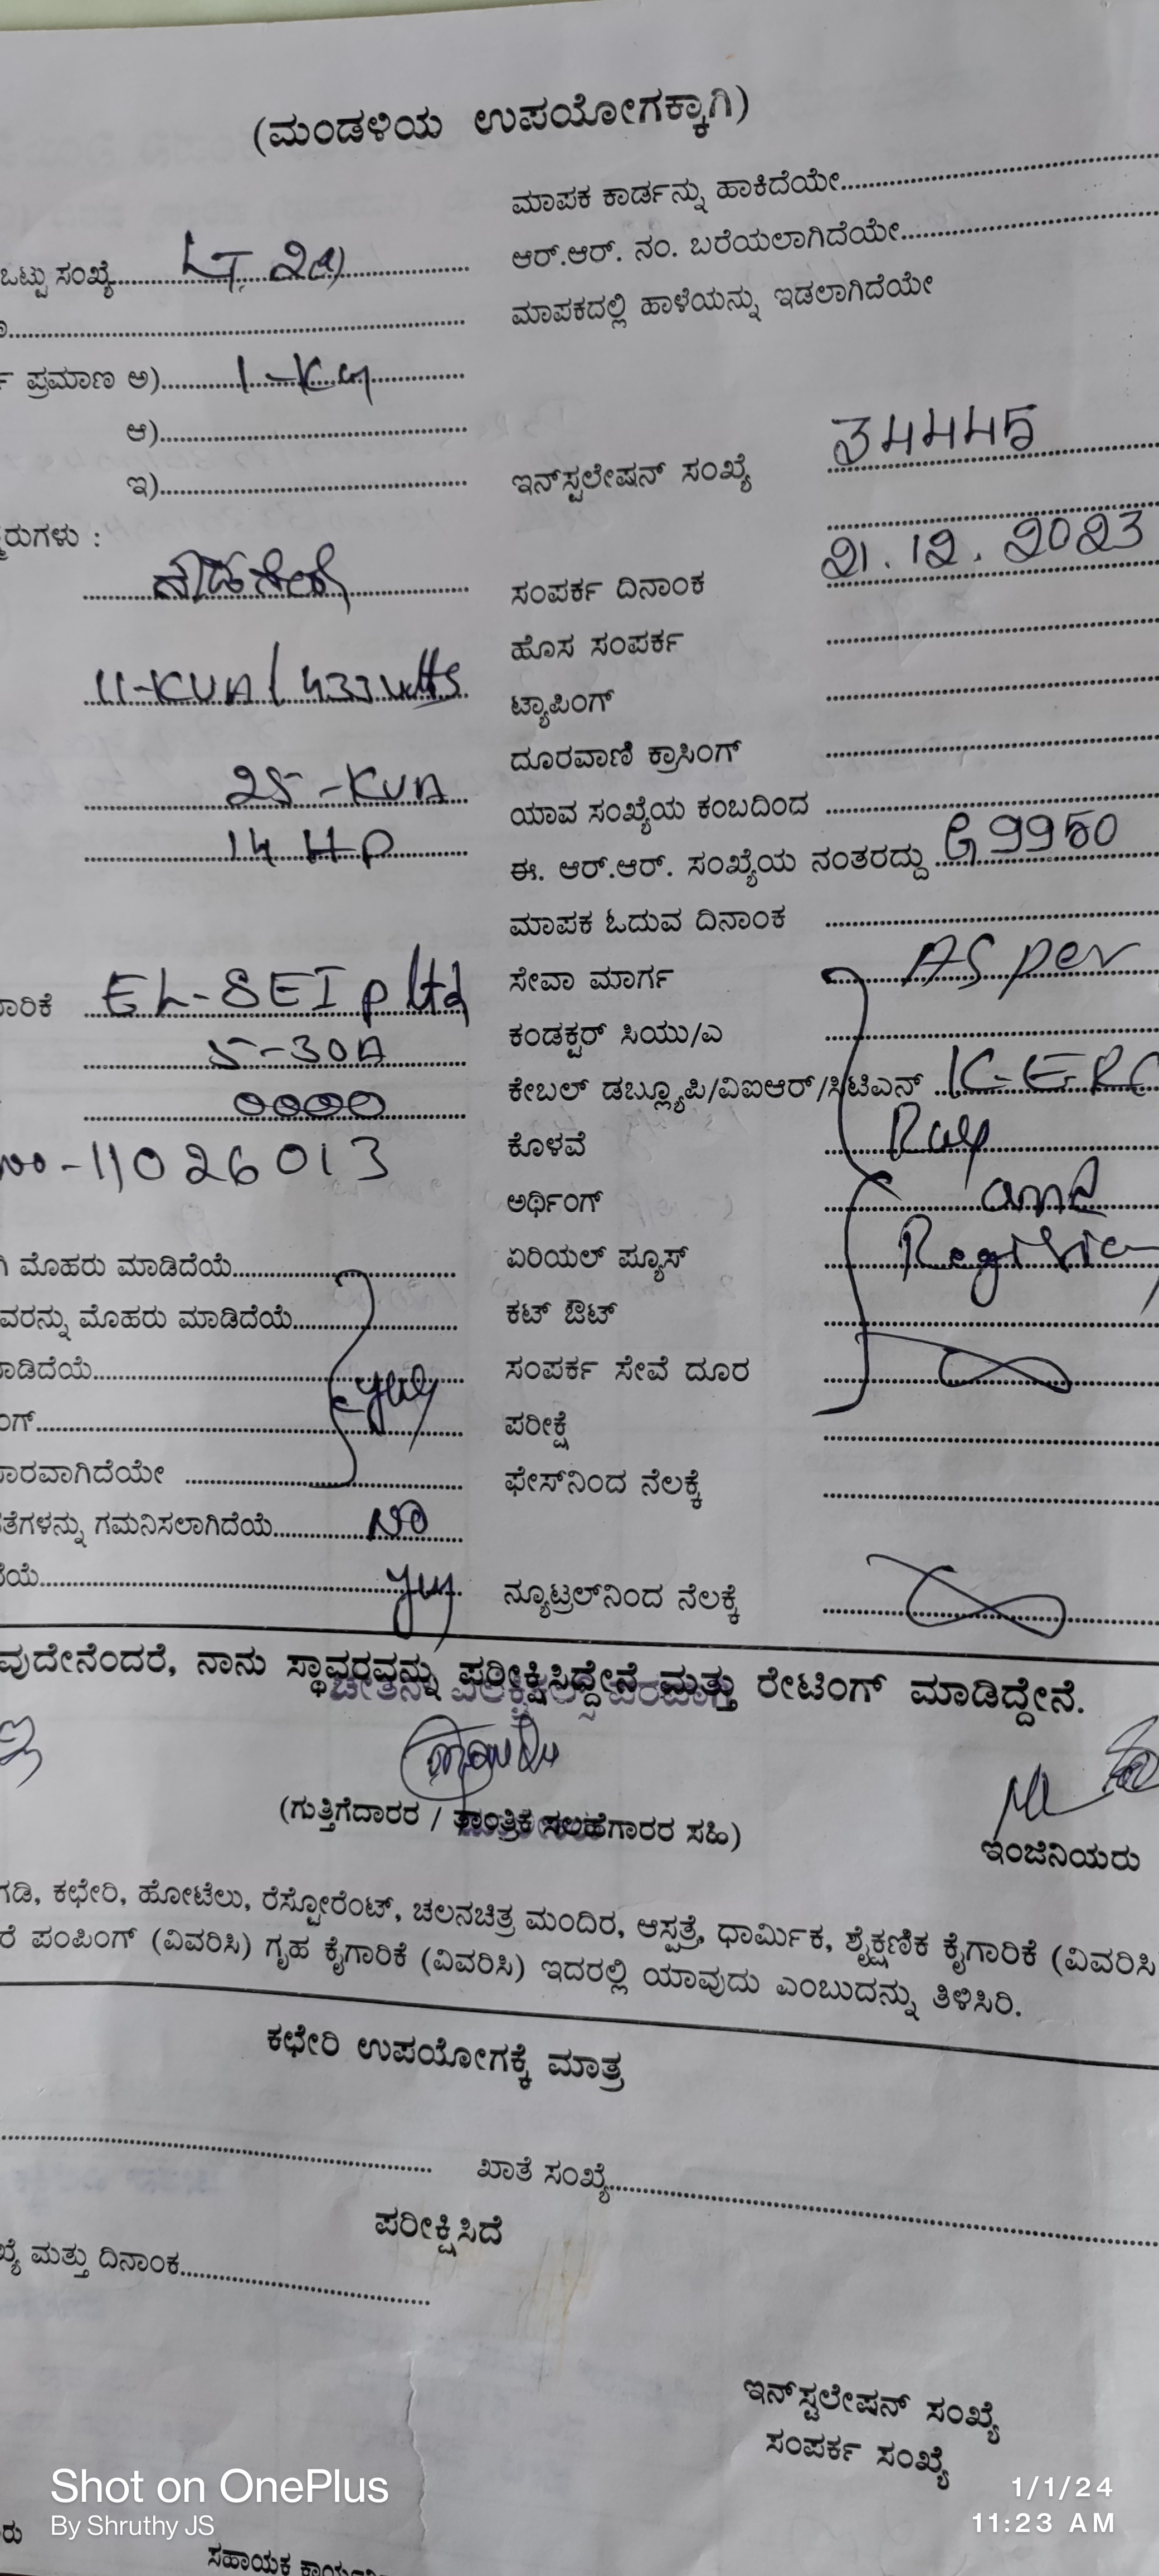 (ಮಂಡಳಿಯ ಉಪಯೋಗಕ್ಕಾಗಿ)
ಮಾಪಕ ಕಾರ್ಡನ್ನು ಹಾಕಿದೆಯೇ
ಒಟ್ಟು ಸಂಖ್ಯೆ LT, 2a) ಆರ್.ಆರ್. ನಂ. ಬರೆಯಲಾಗಿದೆಯೇ
ಮಾಪಕದಲ್ಲಿ ಹಾಳೆಯನ್ನು ಇಡಲಾಗಿದೆಯೇ
ಪ್ರಮಾಣ ಅ) 1-Kw
ಆ)
ಇ) ಇನ್‌ಸ್ಟಲೇಷನ್ ಸಂಖ್ಯೆ 34445
ರುಗಳು :
ಸಂಪರ್ಕ ದಿನಾಂಕ 21.12.2023
ಹೊಸ ಸಂಪರ್ಕ
11-KVA / 433 ಟ್ಯಾಪಿಂಗ್
ದೂರವಾಣಿ ಕ್ರಾಸಿಂಗ್
25-KVA ಯಾವ ಸಂಖ್ಯೆಯ ಕಂಬದಿಂದ
14 HP ಈ. ಆರ್.ಆರ್. ಸಂಖ್ಯೆಯ ನಂತರದ್ದು G9950
ಮಾಪಕ ಓದುವ ದಿನಾಂಕ
ಾರಿಕೆ EL-SEI P Ltd ಸೇವಾ ಮಾರ್ಗ As per
5-30A ಕಂಡಕ್ಟರ್ ಸಿಯು/ಎ
0000 ಕೇಬಲ್ ಡಬ್ಲ್ಯೂಪಿ/ವಿಐಆರ್/ಸಿಟಿಎನ್ K-ERC
No-11026013 ಕೊಳವೆ
ಅರ್ಥಿಂಗ್ and
ಮೊಹರು ಮಾಡಿದೆಯೆ ಏರಿಯಲ್ ಫ್ಯೂಸ್
ವರನ್ನು ಮೊಹರು ಮಾಡಿದೆಯೆ ಕಟ್ ಔಟ್
ಾಡಿದೆಯೆ ಸಂಪರ್ಕ ಸೇವೆ ದೂರ
ಂಗ್ ಪರೀಕ್ಷೆ
ಾರವಾಗಿದೆಯೇ ಫೇಸ್‌ನಿಂದ ನೆಲಕ್ಕೆ
ತೆಗಳನ್ನು ಗಮನಿಸಲಾಗಿದೆಯೆ NO
ೆಯೆ yes ನ್ಯೂಟ್ರಲ್‌ನಿಂದ ನೆಲಕ್ಕೆ
ವುದೇನೆಂದರೆ, ನಾನು ಸ್ಥಾವರವನ್ನು ಪರೀಕ್ಷಿಸಿದ್ದೇನೆ ಮತ್ತು ರೇಟಿಂಗ್ ಮಾಡಿದ್ದೇನೆ.
(ಗುತ್ತಿಗೆದಾರರ / ತಾಂತ್ರಿಕ ಸಲಹೆಗಾರರ ಸಹಿ) ಇಂಜಿನಿಯರು
ಗಡಿ, ಕಛೇರಿ, ಹೋಟೆಲು, ರೆಸ್ಟೋರೆಂಟ್, ಚಲನಚಿತ್ರ ಮಂದಿರ, ಆಸ್ಪತ್ರೆ, ಧಾರ್ಮಿಕ, ಶೈಕ್ಷಣಿಕ ಕೈಗಾರಿಕೆ (ವಿವರಿಸಿ
ರೆ ಪಂಪಿಂಗ್ (ವಿವರಿಸಿ) ಗೃಹ ಕೈಗಾರಿಕೆ (ವಿವರಿಸಿ) ಇದರಲ್ಲಿ ಯಾವುದು ಎಂಬುದನ್ನು ತಿಳಿಸಿರಿ.
ಕಛೇರಿ ಉಪಯೋಗಕ್ಕೆ ಮಾತ್ರ
ಖಾತೆ ಸಂಖ್ಯೆ
ಪರೀಕ್ಷಿಸಿದೆ
ಖ್ಯೆ ಮತ್ತು ದಿನಾಂಕ
ಇನ್‌ಸ್ಟಲೇಷನ್ ಸಂಖ್ಯೆ
ಸಂಪರ್ಕ ಸಂಖ್ಯೆ
Shot on OnePlus 1/1/24
By Shruthy JS 11:23 AM
ರು ಸಹಾಯಕ